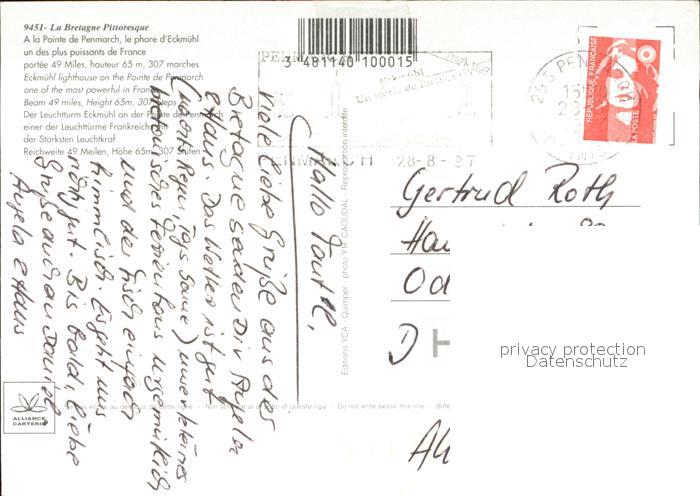 9451- La Bretagne Pittoresque
A la Pointe de Penmarch, le phare d'Eckmühl
un des plus puissants de France
portée 49 Miles, hauteur 65 m, 307 marches
Eckmühl lighthouse on the Pointe de Penmarch
one of the most powerful in France
Beam 49 miles, Height 65m, 307 steps
Der Leuchtturm Eckmühl an der Pointe de Penmarch
einer der Leuchttürme Frankreich mit
der Stärksten Leuchtkraf
Reichweite 49 Meilen, Höhe 65m, 307 Stufen
3 481140 100015
Eckmühl
Un siècle de lumière
28-8-97
295 PEN
REPUBLIQUE FRANÇAISE
LA POSTE
Hallo Tante,
viele liebe Grüße aus der
Bretagne senden Dir Angela
+ Hans. Das Wetter ist gut
(nachts Regen, Tags Sonne) unser kleines
bretonisches Ferienhaus urgemütlich
und der Fisch einfach
himmlisch. Es geht uns
richtig gut. Bis bald, liebe
Grüße auch an
Angela + Hans
Editions YCA - Quimper - photo Y.R. CAOUDAL - Reproduction interdite
Gertrud Roth
Ha
Od
D
privacy protection
Datenschutz
ALLIANCE
CARTERIE
Do not write below this line - Bitte